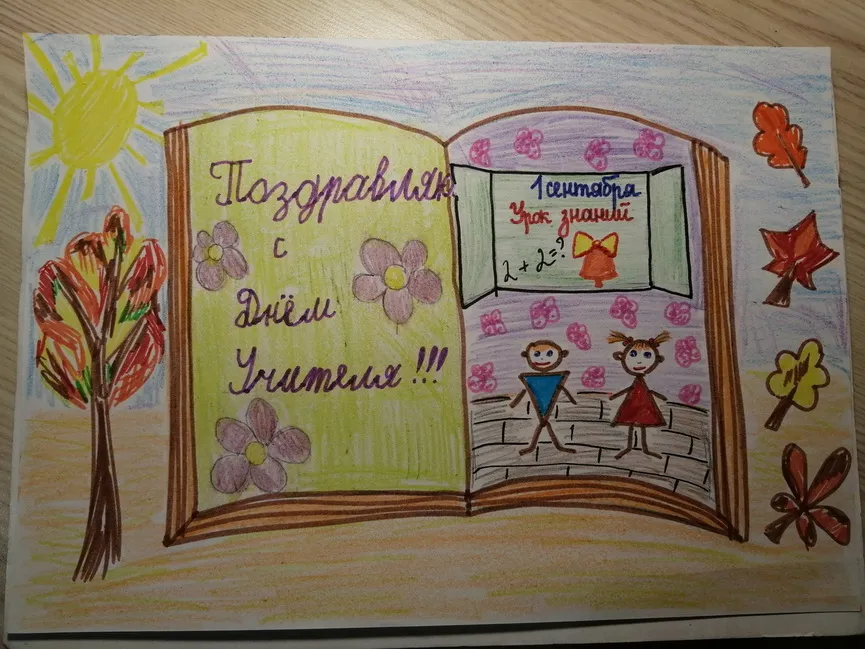 Поздравляю
с
Днём
Учителя!!!
1 сентября
Урок знаний
2 + 2 = ?